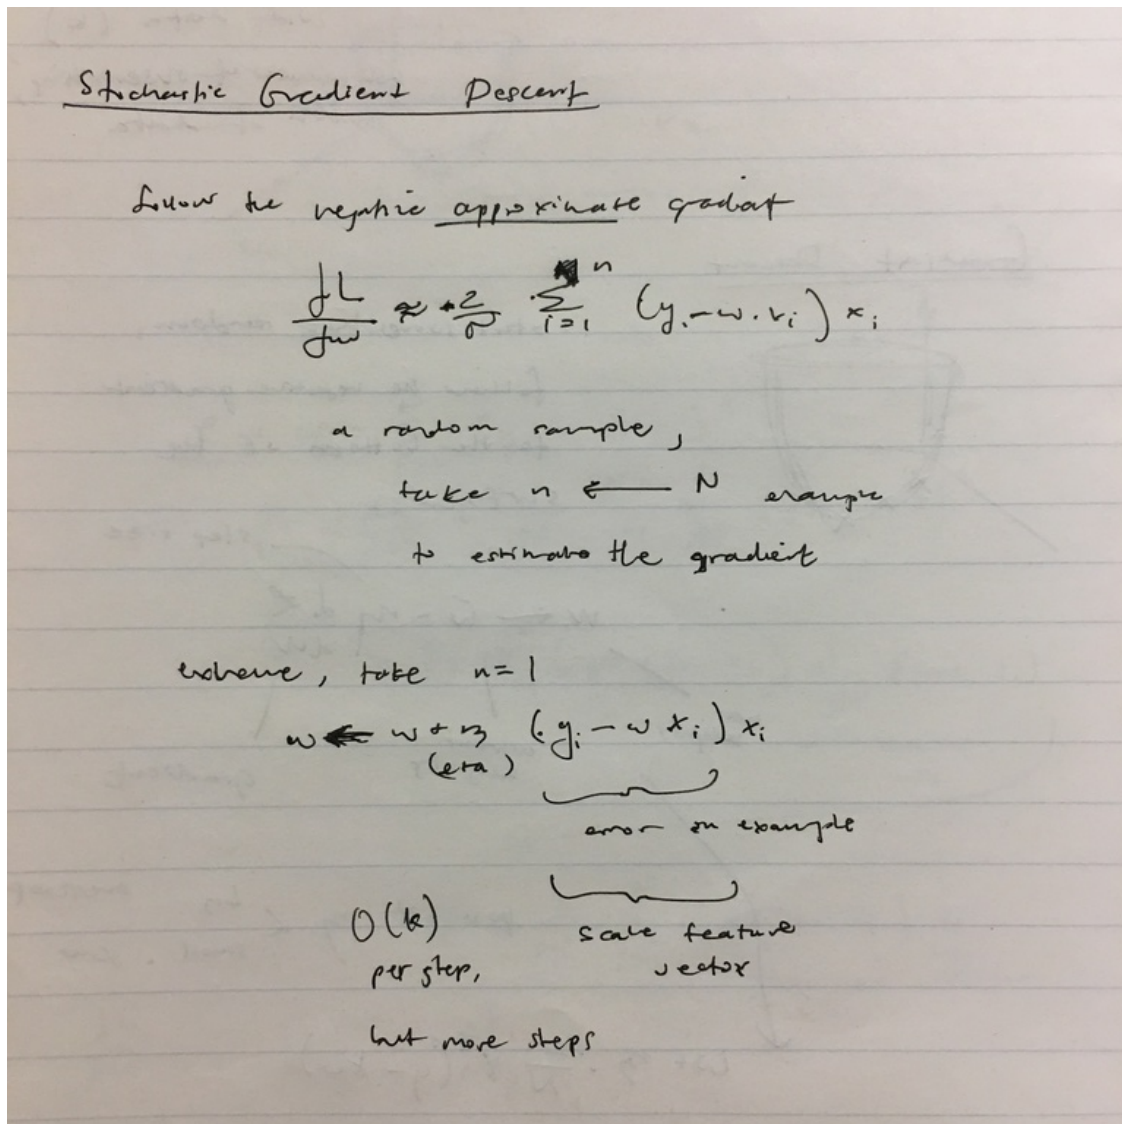 Stochastic Gradient Descent
follow the negative approximate gradient
dL/dw ≈ -2/n Σ i=1 n (yi - w . xi) xi
a random sample,
take n ← N example
to estimate the gradient
extreme, take n = 1
w ← w + η (yi - w xi) xi
(eta)
error on example
O(k)
scale feature
per step,
vector
but more steps